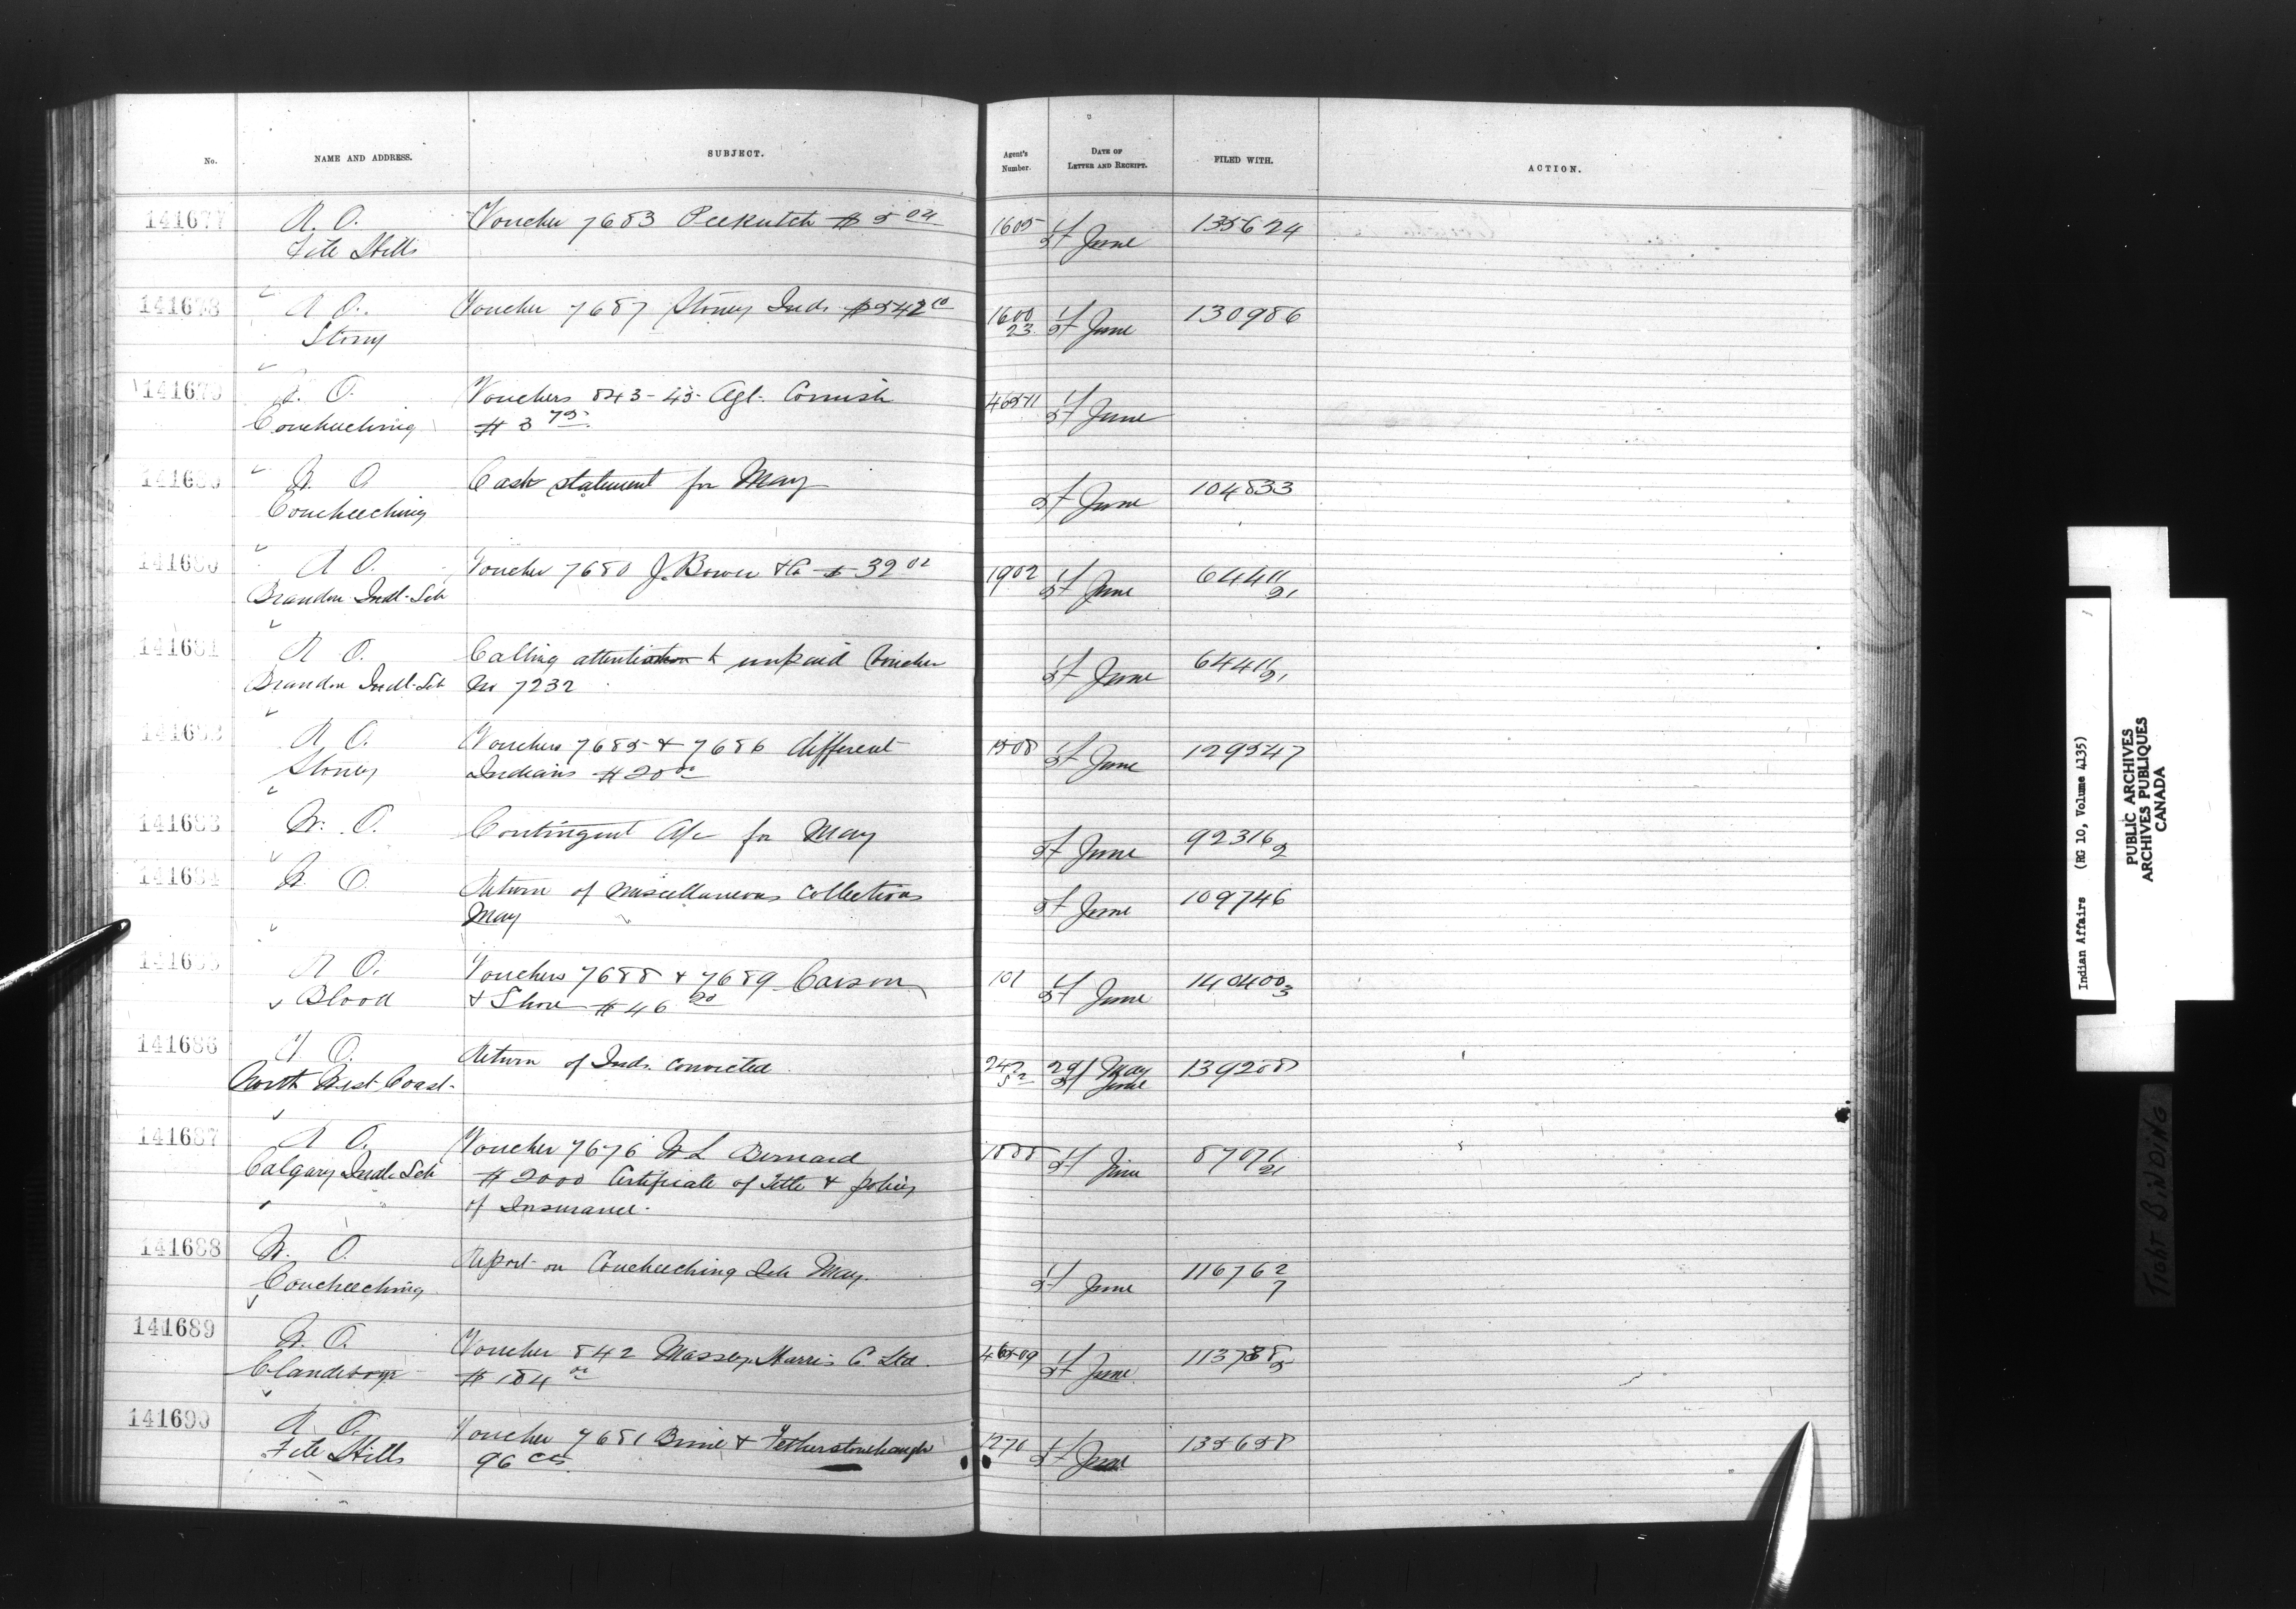 No.
NAME AND ADDRESS.
SUBJECT.
Agent's Number.
DATE OF LETTER AND RECEIPT.
FILED WITH.
ACTION.
141677 R. O. Voucher 7683 Peekutch $5 04 1605 1/5 June 135624
File Hills
141678 R O. Voucher 7687 Stoney Inds. $542 10 1600 23 June 130986
Stony
141679 O. Vouchers 843-45 Agt. Cornish 46511 June
Coucheeching $3 75
W. O. Cash statement for May June 104833
Coucheeching
141680 R O. Voucher 7680 J. Bower & Co $32 02 1902 June 64411 21
Brandon Indl. Sch
141681 R O. Calling attention to unpaid Voucher June 64411 21
Brandon Indl. Sch No 7232
141682 R O. Vouchers 7685 & 7686 different 1508 June 129547
Stoney Indians $20 00
141683 W. O. Contingent A/c for May June 92316 2
141684 W. O. Return of Miscellaneous Collections June 109746
May
141685 R O. Vouchers 7688 & 7689 Carson 101 June 140400 3
Blood & Shore $46 50
141686 V. O. Return of Inds. convicted 242 29 May June 139208
North West Coast
141687 R O. Voucher 7676 W L Bernard 1888 June 87071 21
Calgary Indl. Sch $2000 Certificate of Title & policy
of Insurance.
141688 W. O. Report on Coucheeching Sch May. June 116762 7
Coucheeching
141689 W. O. Voucher 842 Massey Harris Co Ltd. 46509 June 113788 5
Clandeboye $184 00
141690 R O. Voucher 7681 Brine & Fetherstonhaugh 1270 June 135658
File Hills 96 cts.
Indian Affairs (RG 10, Volume 4135)
PUBLIC ARCHIVES
ARCHIVES PUBLIQUES
CANADA
TIGHT BINDING